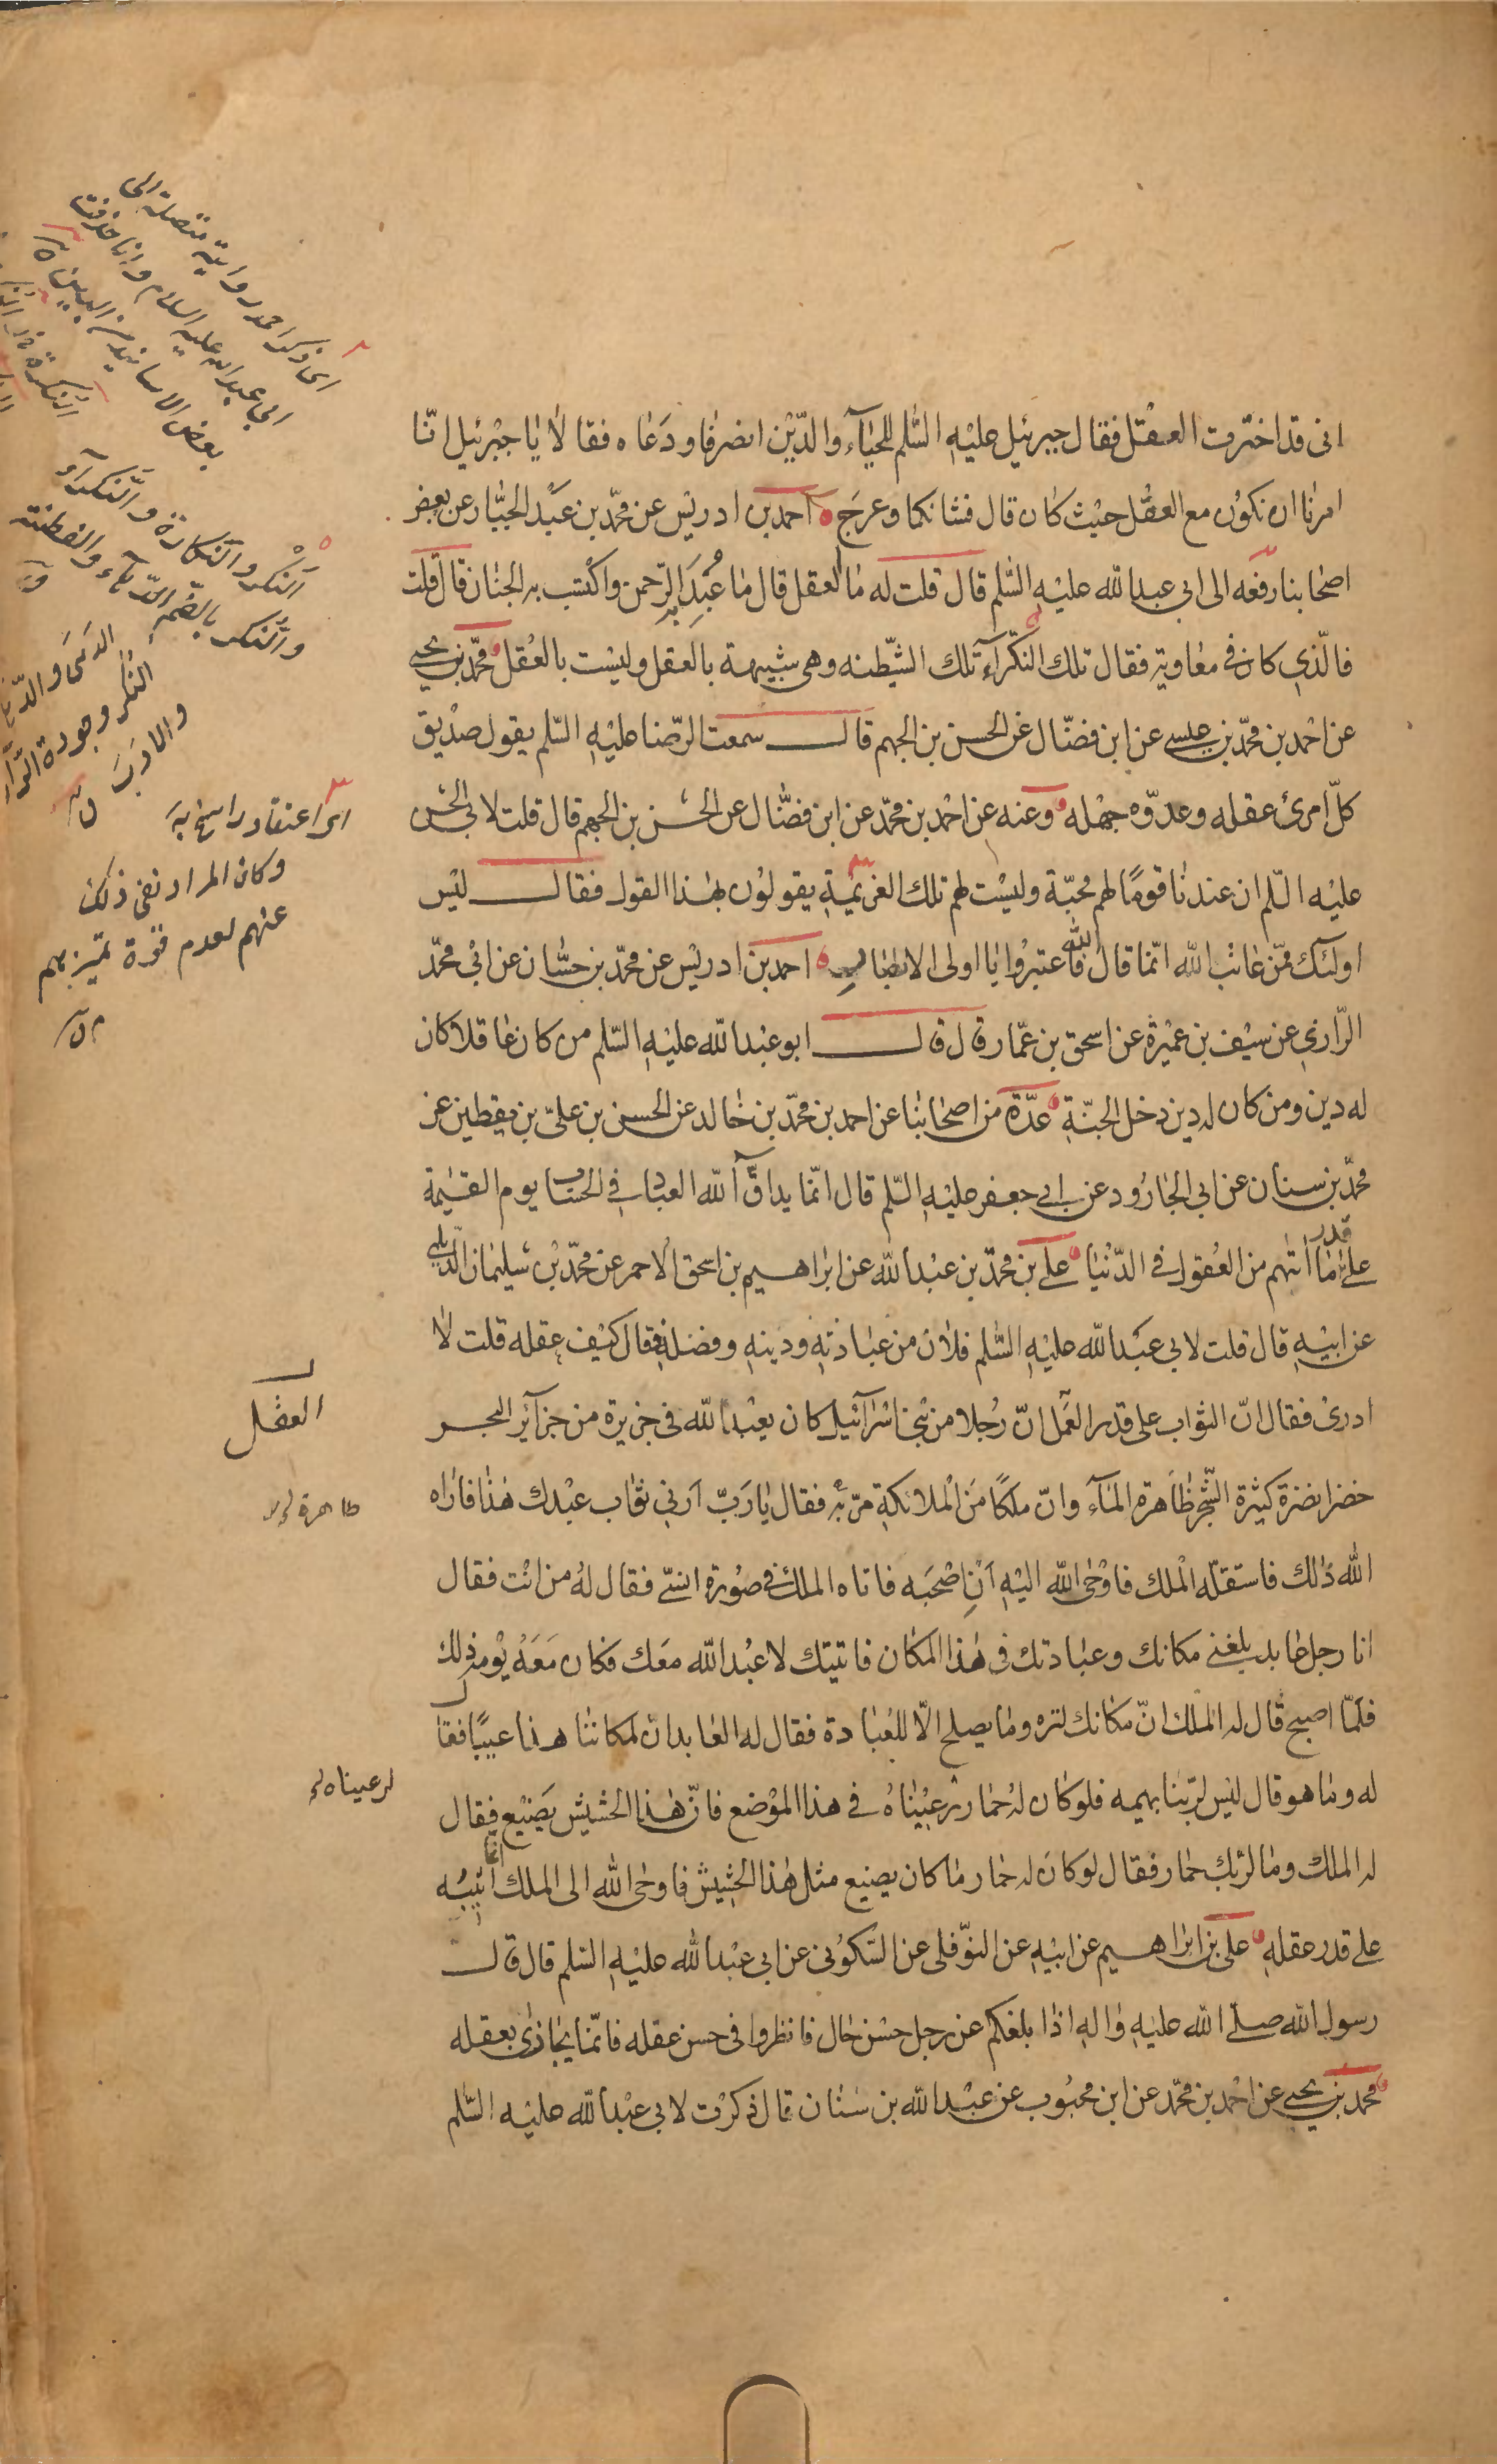 انى قد اخترت العقل فقال جبرئيل عليه السّلم للحياء والدّين انصرفا ودعاه فقالا يا جبرئيل انّا
امرنا ان نكون مع العقل حيث كان قال فشانكما وعرج احمد بن ادريس عن محمّد بن عبد الجبّار عن بعض
اصحابنا رفعه الى ابى عبدالله عليه السّلم قال قلت له ما العقل قال ما عُبِدَ به الرّحمن واكتسب به الجنان قال قلت
فالّذى كان فى معاوية فقال تلك النّكراء تلك الشّيطنه وهى شبيهة بالعقل وليست بالعقل محمّد بن يحيى
عن احمد بن محمّد بن عيسى عن ابن فضّال عن الحسن بن الجهم قال سمعت الرّضا عليه السّلم يقول صديق
كلّ امرئ عقله وعدوّه جهله وعنه عن احمد بن محمّد عن ابن فضّال عن الحسن بن الجهم قال قلت لابى الحسن
عليه السّلم ان عندنا قومًا لهم محبّة وليست لهم تلك العزيمة يقولون بهذا القول فقال ليس
اولئك ممّن عاتب الله انّما قال الله فاعتبروا يا اولى الابصار احمد بن ادريس عن محمّد بن حسّان عن ابى محمّد
الرّازى عن سيف بن عميرة عن اسحق بن عمّار قال قال ابو عبدالله عليه السّلم من كان عاقلا كان
له دين ومن كان له دين دخل الجنّة عدّة من اصحابنا عن احمد بن محمّد بن خالد عن الحسن بن علىّ بن يقطين عن
محمّد بن سنان عن ابى الجارود عن ابى جعفر عليه السّلم قال انّما يداقّ الله العباد فى الحساب يوم القيمة
على قدر ما اتيهم من العقول فى الدّنيا على بن محمّد بن عبدالله عن ابراهيم بن اسحق الاحمر عن محمّد بن سليمان الدّيلمى
عن ابيه قال قلت لابى عبدالله عليه السّلم فلان من عبادته ودينه وفضله فقال كيف عقله قلت لا
ادرى فقال انّ الثواب على قدر العمل انّ رجلا من بنى اسرآئيل كان يعبد الله فى جزيرة من جزآئر البحر
العقل
خضرا نضرة كثيرة الشّجر ظاهرة المآء وانّ ملكًا من الملائكة مرّ به فقال يا ربّ ارنى ثواب عبدك هذا فاراه
طاهرة
الله ذلك فاستقلّه الملك فاوحى الله اليه اَنِ اصحبه فاتاه الملك فى صورة انسىّ فقال له من انت فقال
انا رجل عابد بلغنى مكانك وعبادتك فى هذا المكان فاتيتك لاعبد الله معك فكان معه يومه ذلك
فلمّا اصبح قال له الملك انّ مكانك لنزه وما يصلح الّا للعبادة فقال له العابد انّ لمكاننا هذا عيبًا فقال
له وما هو قال ليس لربّنا بهيمه فلو كان له حمار رعيناه فى هذا الموضع فانّ هذا الحشيش يضيع فقال
لرعيناه
له الملك وما لربّك حمار فقال لو كان له حمار ما كان يضيع مثل هذا الحشيش فاوحى الله الى الملك انّما اثيبه
على قدر عقله على بن ابراهيم عن ابيه عن النّوفلى عن السّكونى عن ابى عبدالله عليه السّلم قال قال
رسول الله صلّى الله عليه واله اذا بلغكم عن رجل حسن حال فانظروا فى حسن عقله فانّما يجازى بعقله
محمد بن يحيى عن احمد بن محمّد عن ابن محبوب عن عبدالله بن سنان قال ذكرت لابى عبدالله عليه السّلم
اى ذكر احمد رواية متصلة الى
ابى عبدالله عليه السلام وانا حذفت
بعض الاسانيد من البين
النكر والنكارة والنكرآء
والنكر بالضم الدهآء والفطنة
اى اعتقاد راسخ به
وكان المراد نفى ذلك
عنهم لعدم قوة تميزهم